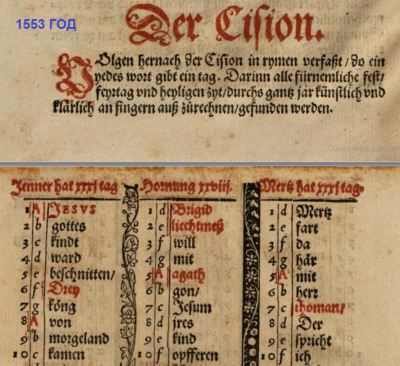 1553 ГОД
Der Cision.
VOlgen hernach der Cision in rymen verfaßt / do ein
yedes wort gibt ein tag. Darinn alle fürnemliche fest /
feyrtag vnd heyligen zyt / durchs gantz jar künstlich vnd
klärlich an fingern auß zürechnen / gefunden werden.
Jenner hat xxxj tag
1 A JESVS
2 b gottes
3 c kindt
4 d ward
5 e beschnitten /
6 f Drey
7 g köng
8 A von
9 b morgeland
10 c kamen
Hornung xxviij.
1 d Brigid
2 e liechtmeß
3 f will
4 g mit
5 A agath
6 b gon /
7 c Jesum
8 d jres
9 e kind
10 f opfferen
Mertz hat xxxj tag.
1 d Mertz
2 e fart
3 f da
4 g här
5 A mit
6 b herz
7 c thoman /
8 d Der
9 e spricht
10 f ich